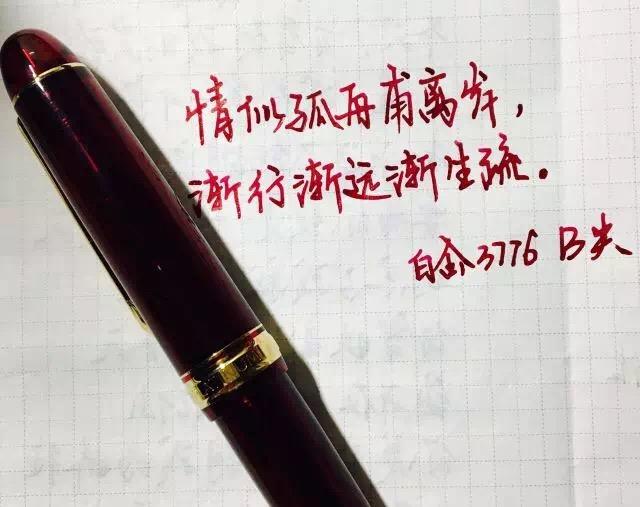 情似孤舟甫离岸，
渐行渐远渐生疏。
白金3776 B尖